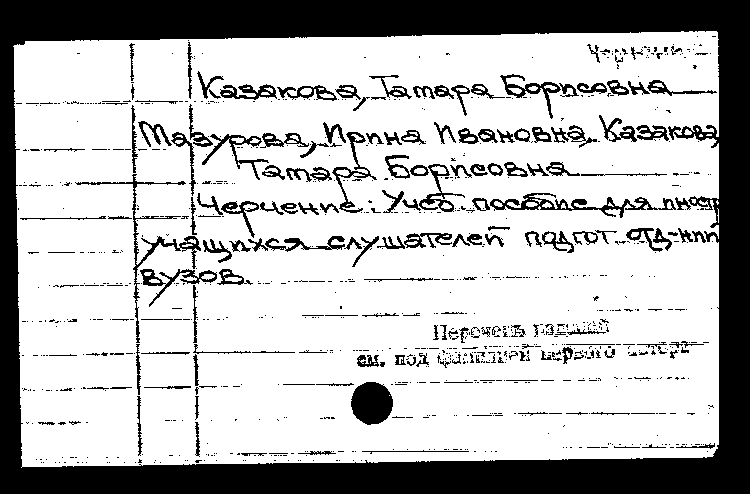 Казакова, Тамара Борисовна
Мазурова, Ирина Ивановна, Казакова,
Тамара Борисовна
Черчение: Учеб. пособие для иностр
учащихся слушателей подгот. отд-ний
вузов.
Перечень изданий
см. под фамилией первого автора